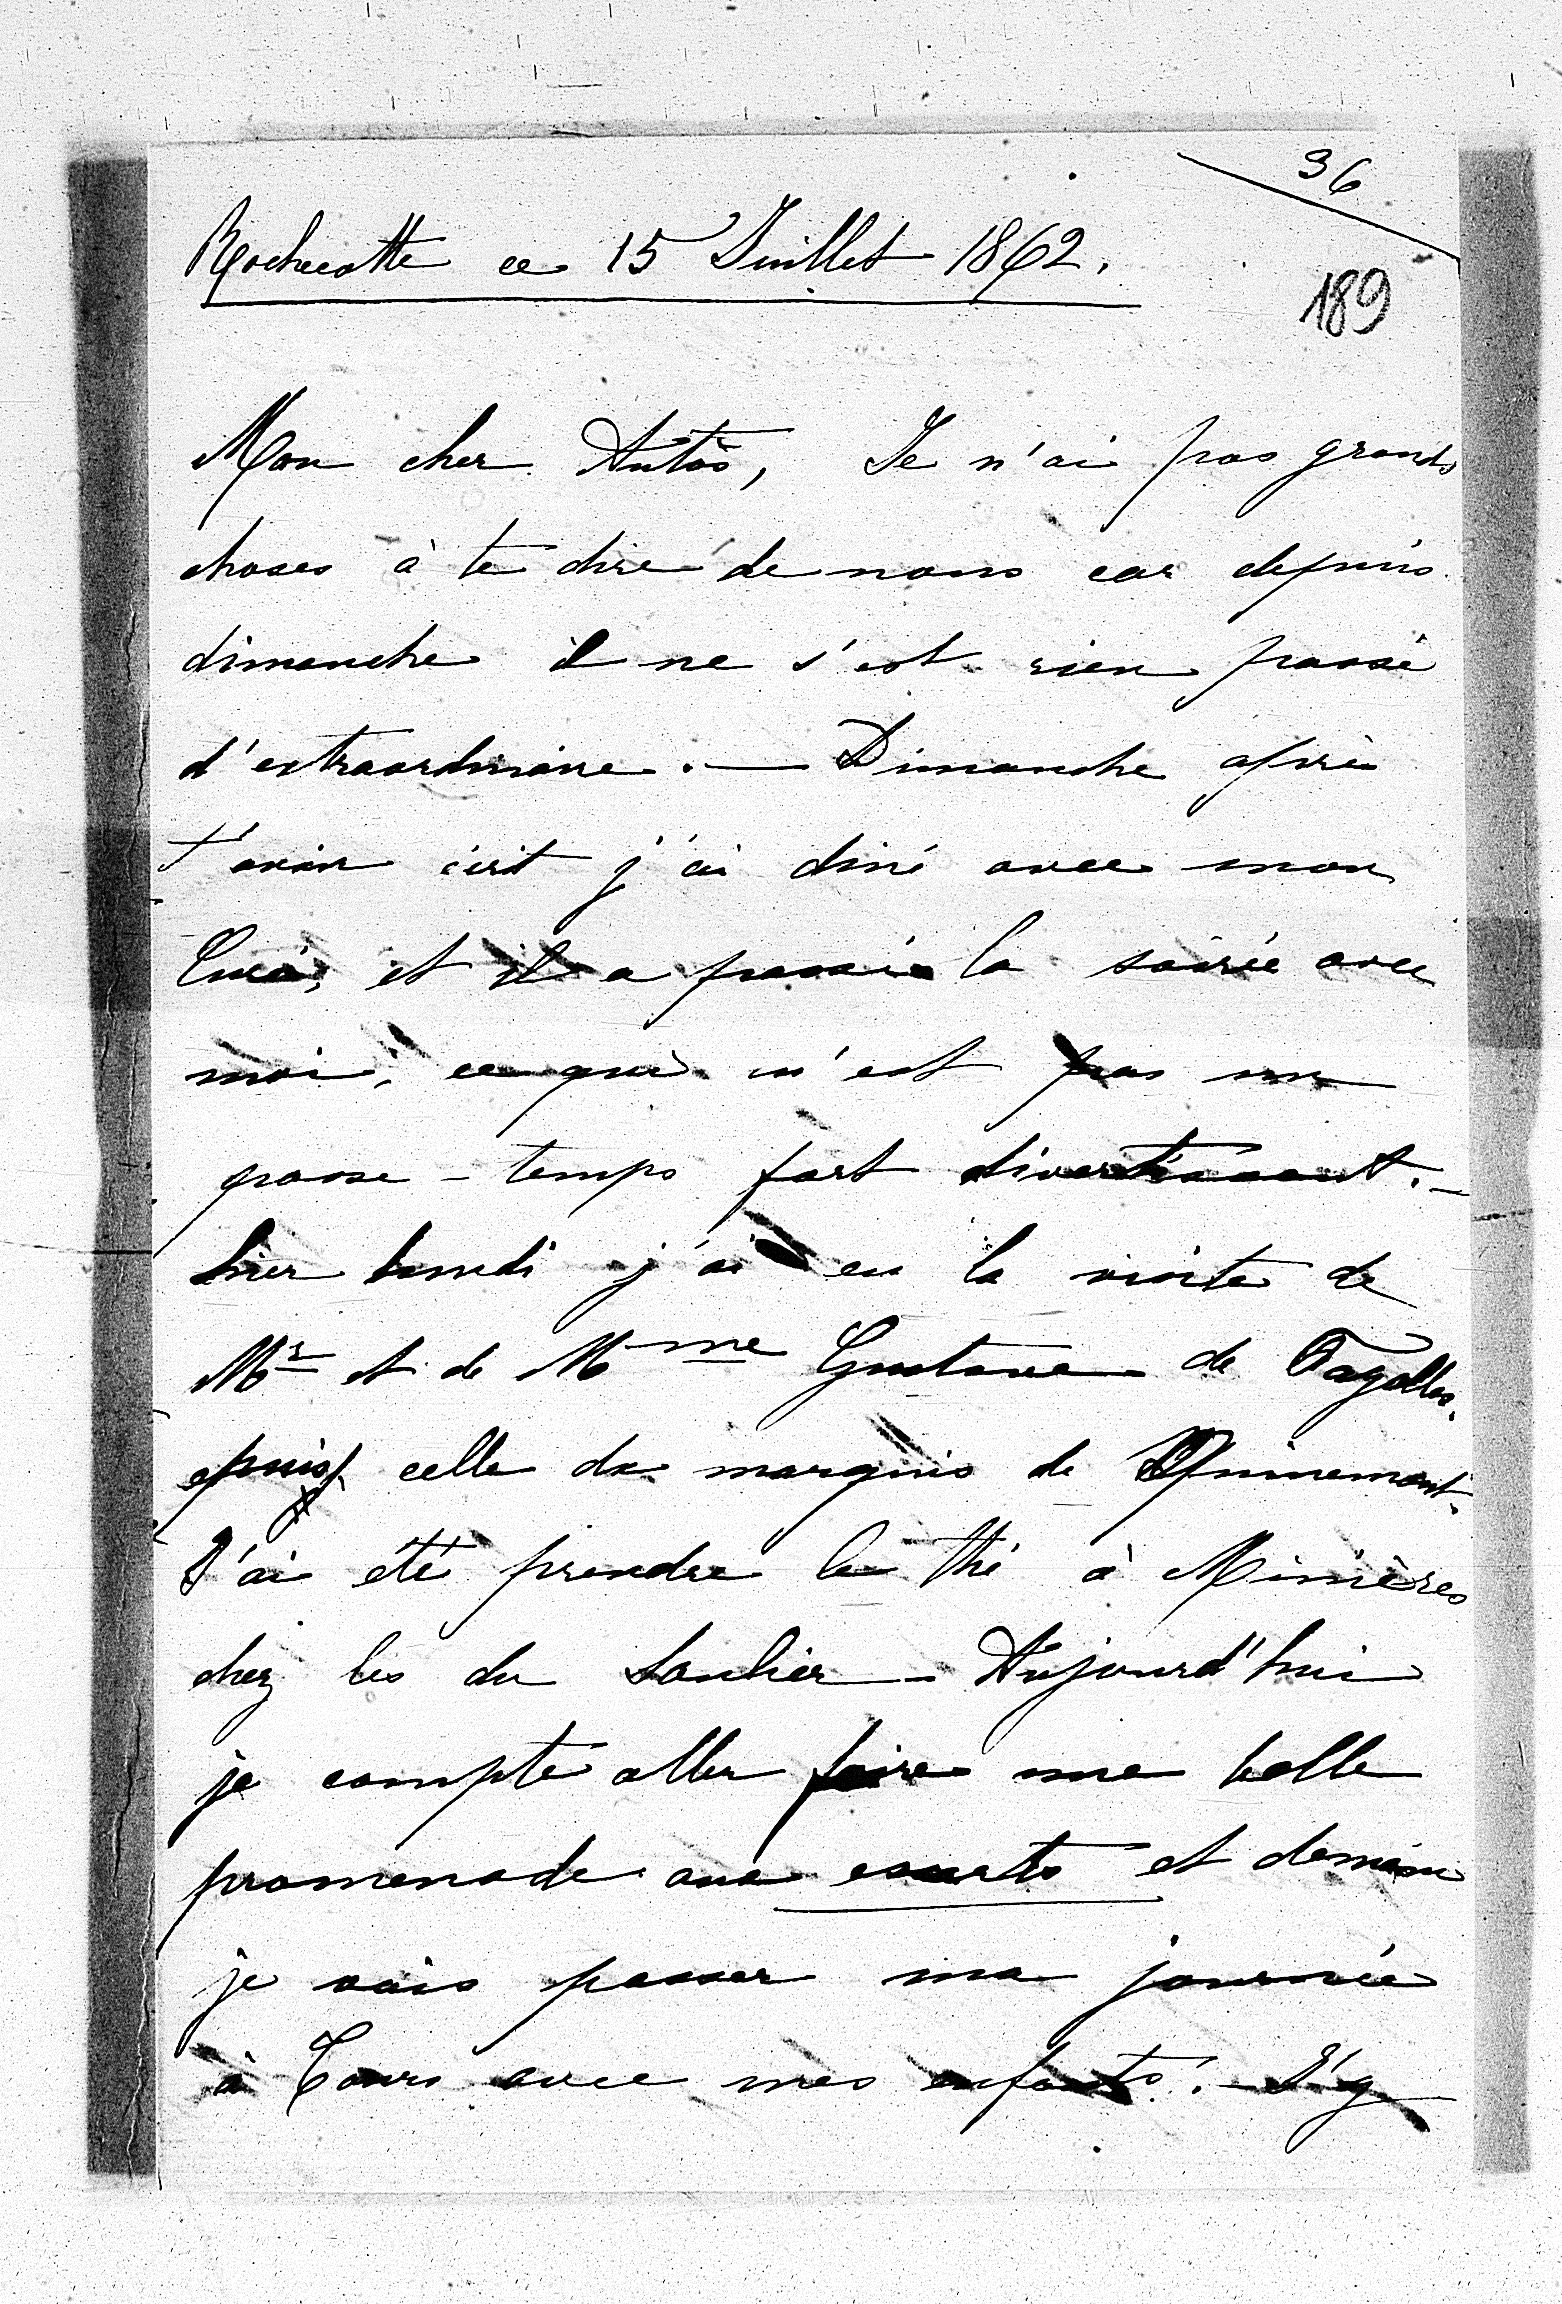 36
Rochecotte ce 15 Juillet 1862.
189
Mon cher Antos, Je n'ai pas grands
choses à te dire de nous car depuis
dimanche il ne s'est rien passé
d'extraordinaire. — Dimanche après
t'avoir écrit j'ai diné avec mon
Curé, et il a passé la soirée avec
moi, ce qui n'est pas un
passe-temps fort divertissant. —
hier lundi j'ai eu la visite de
Mr et de Mme Gustave de
puis celle du marquis de Quinemont.
J'ai été prendre le thé à Minières
chez les du Saulier — Aujourd'hui
je compte aller faire une belle
promenade aux essarts et demain
je vais passer ma journée
à Tours avec mes enfants. — J'y